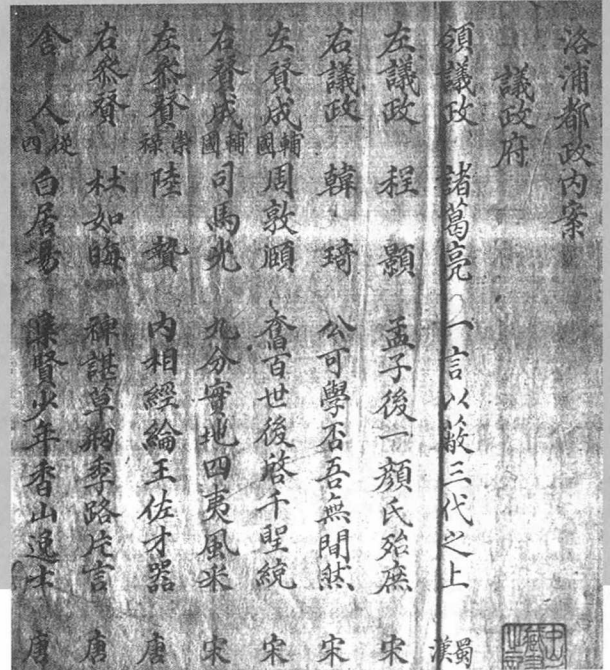 洛浦都政內案
議政府
領議政 諸葛亮 一言以蔽三代之上 蜀漢
左議政 程顥 孟子後一顔氏殆庶 宋
右議政 韓琦 公可學否吾無間然 宋
左賛成 輔國 周敦頤 奮百世後啓千聖統 宋
右賛成 輔國 司馬光 九分實地四夷風采 宋
左叅賛 崇祿 陸贄 內相經綸王佐才器 唐
右叅賛 杜如晦 裨諶草刱季路片言 唐
舍人 從四 白居易 集賢少年香山逸士 唐